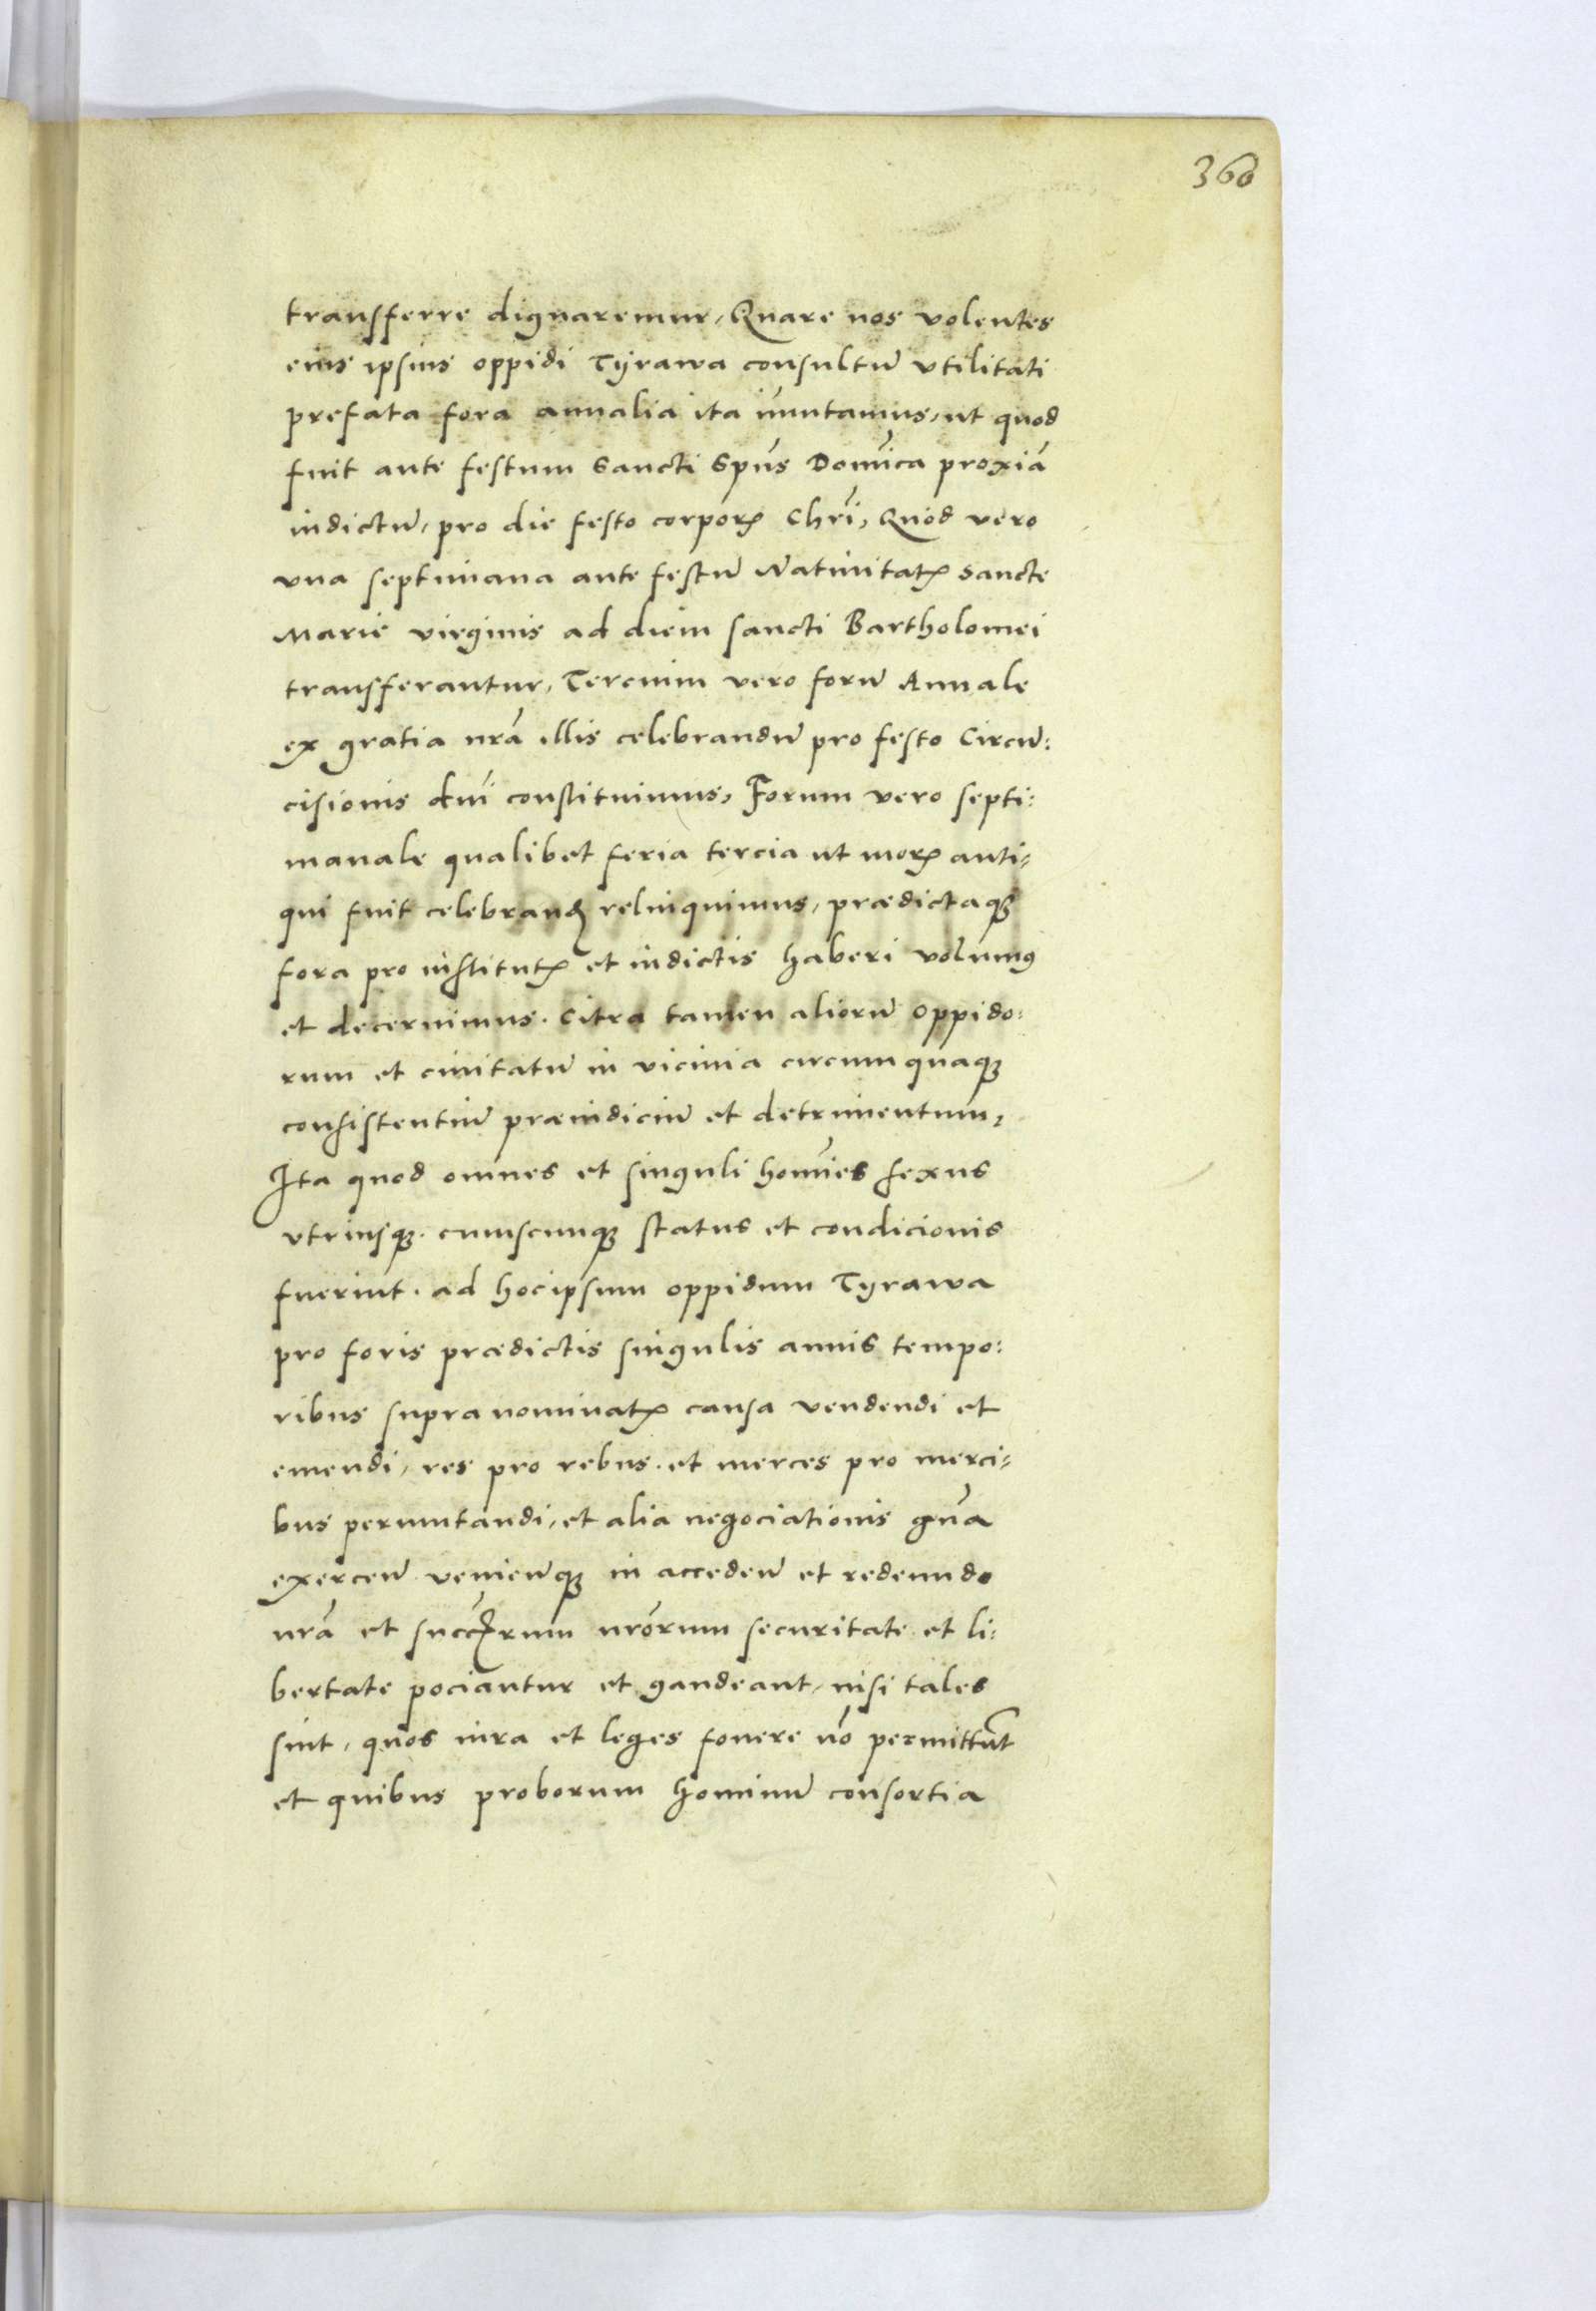 360
transferre dignaremur, Quare nos volentes
eius ipsius oppidi Tÿrawa consultū vtilitati
prefata fora annalia ita im̄utamus, ut quod
fuit ante festum Sancti Spūs Domīca proxīa
indictū, pro die festo corporꝭ Chrī, Quod vero
vna septimana ante festū Natiuitatꝭ Sancte
Marie virginis ad diem sancti Bartholomei
transferantur, Tercium vero forū Annale
ex gratia nrā illis celebrandū pro festo Circū:
cisionis dnī constituimus, Forum vero septi:
manale qualibet feria tercia ut morꝭ anti-
qui fuit celebranꝺ relinquimus, prædictaqꝫ
fora pro institutꝭ et indictis haberi volumꝰ
et decernimus. Citra tamen aliorū oppido:
rum et ciuitatū in vicinia circumquaqꝫ
consistentiū præiudiciū et detrimentum,
Ita quod omnes et singuli homīes sexus
vtriusqꝫ. cuiuscunqꝫ status et condicionis
fuerint. ad hocipsum oppidum Tÿrawa
pro foris prædictis singulis annis tempo:
ribus supra nominatꝭ causa vendendi et
emendi, res pro rebus. et merces pro merci-
bus permutandi, et alia negociationis gn̄a
exercen̄ venien̄qꝫ in acceden̄ et redeundo
nrā et succꝭrum nrōrum securitate et li:
bertate pociantur et gaudeant, nisi tales
sint, quos iura et leges fouere nō permittūt
et quibus proborum hominū consortia